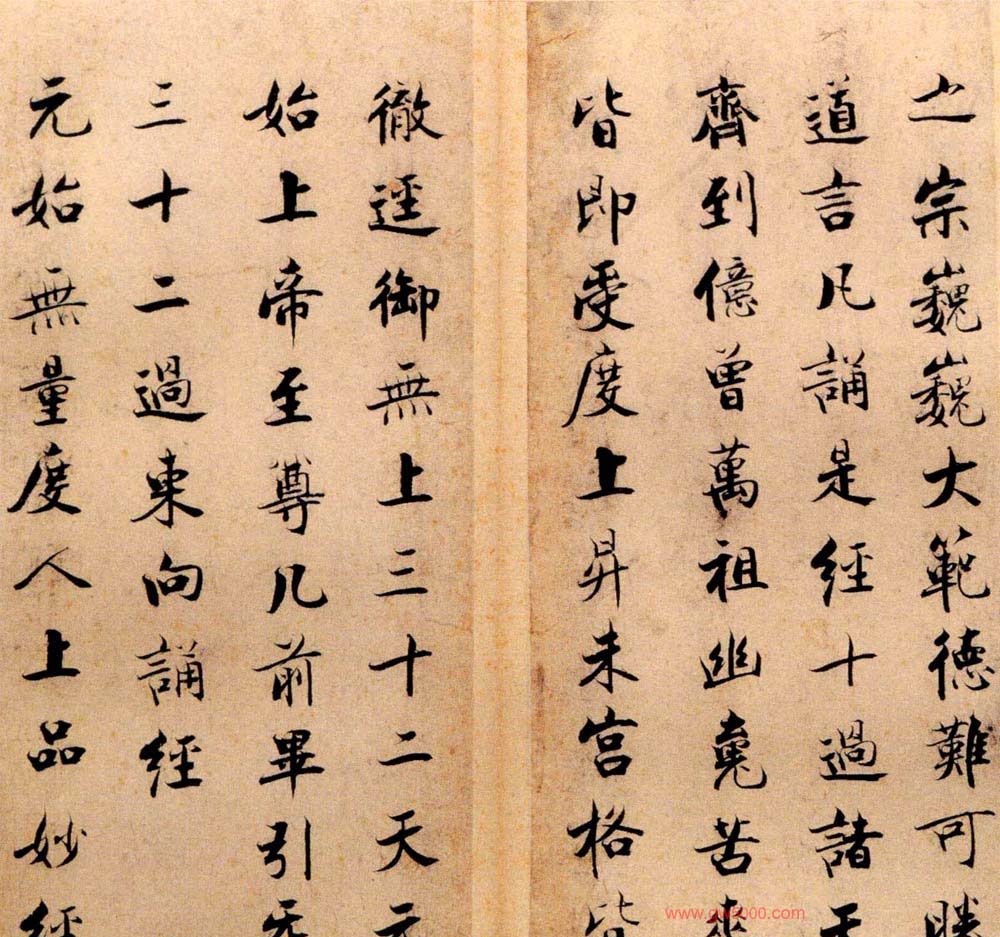 之宗巍巍大範德難可勝
道言凡誦是經十過諸天
齊到億曾萬祖幽䰟苦爽
皆即受度上昇朱宮格皆
徹逕御無上三十二天元
始上帝至尊几前畢引炁
三十二過東向誦經
元始無量度人上品妙經